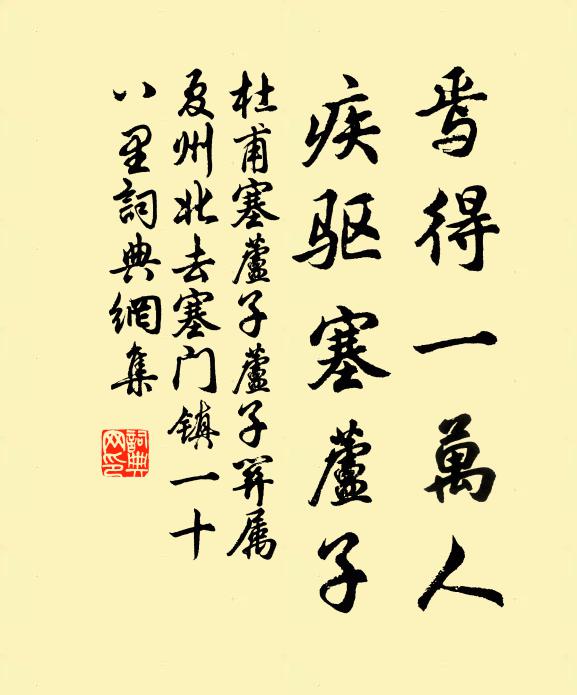 焉得一萬人
疾驱塞蘆子
杜甫塞蘆子蘆子関属
夏州北去塞门镇一十
八里詞典網集
詞典网印